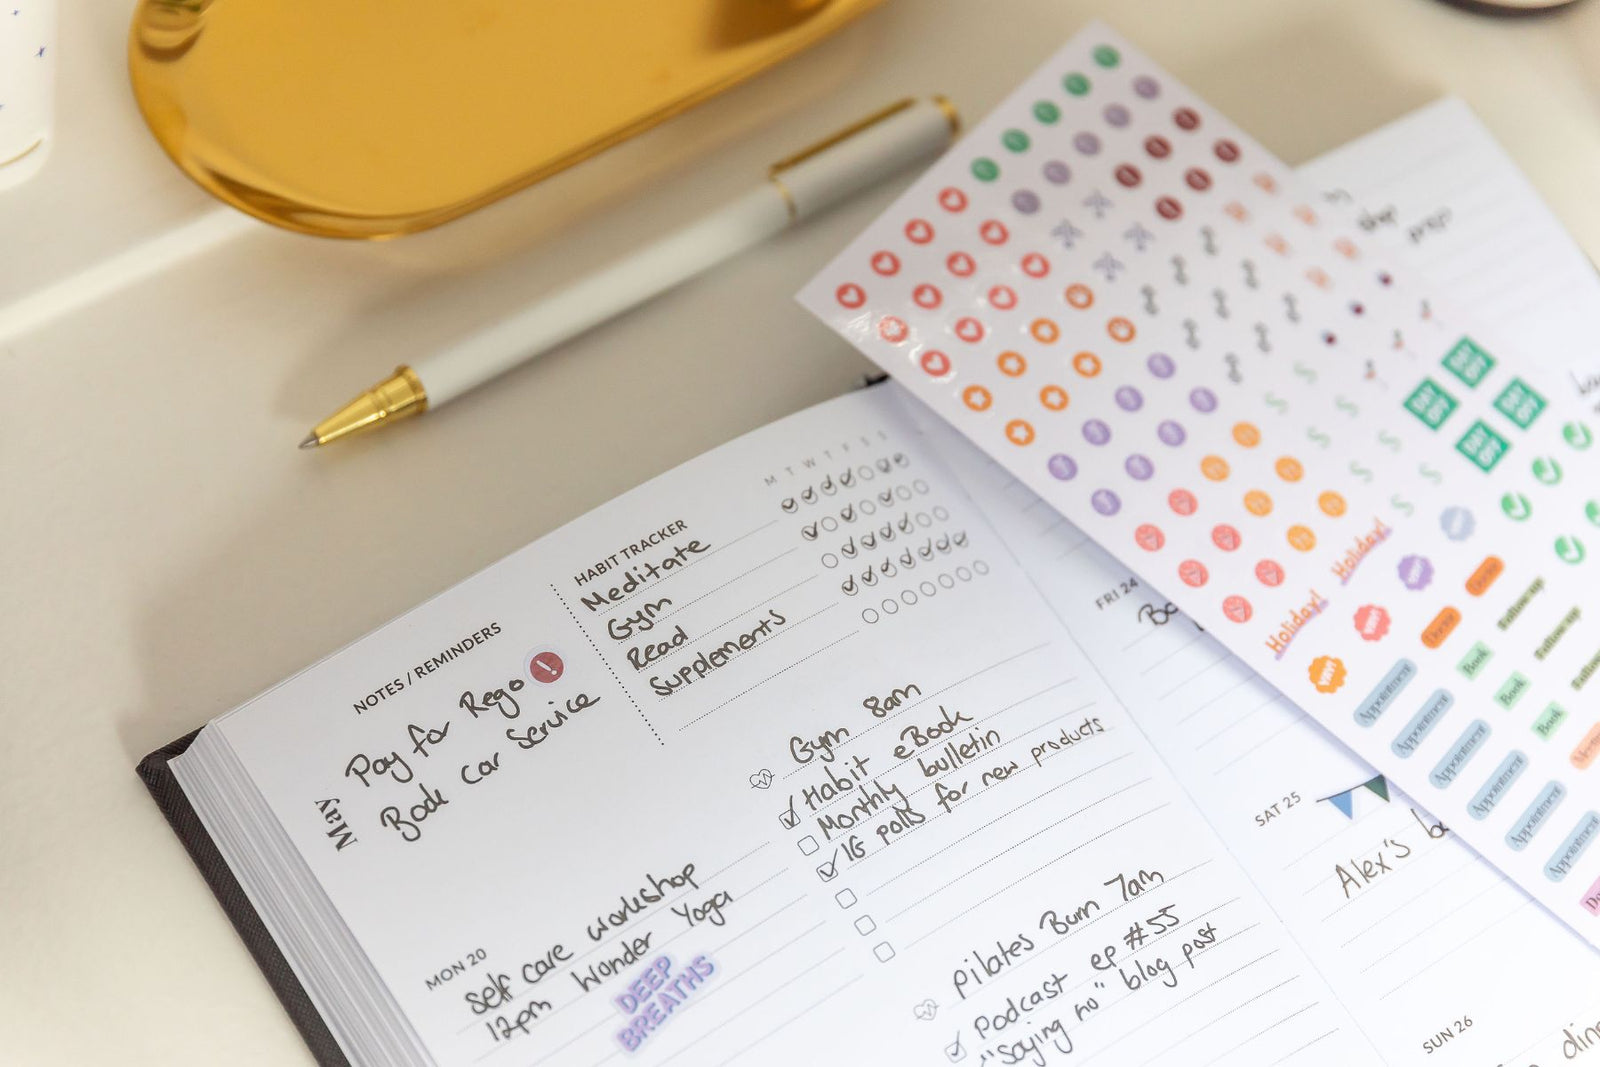 NOTES / REMINDERS
Pay for Rego
Book car service
May
HABIT TRACKER
M T W T F S S
Meditate
Gym
Read
Supplements
MON 20
self care workshop
12pm Wonder Yoga
DEEP
BREATHS
Gym 8am
Habit eBook
Monthly bulletin
IG polls for new products
pilates Burn 7am
Podcast ep #55
"saying no" blog post
FRI 24
SAT 25
Alex's
SUN 26
DAY
OFF
DAY
OFF
DAY
OFF
DAY
OFF
Holiday!
Holiday!
YAY!
YAY!
YAY!
Doctor
Doctor
Follow up
Follow up
Book
Book
Book
Appointment
Appointment
Appointment
Appointment
Appointment
Appointment